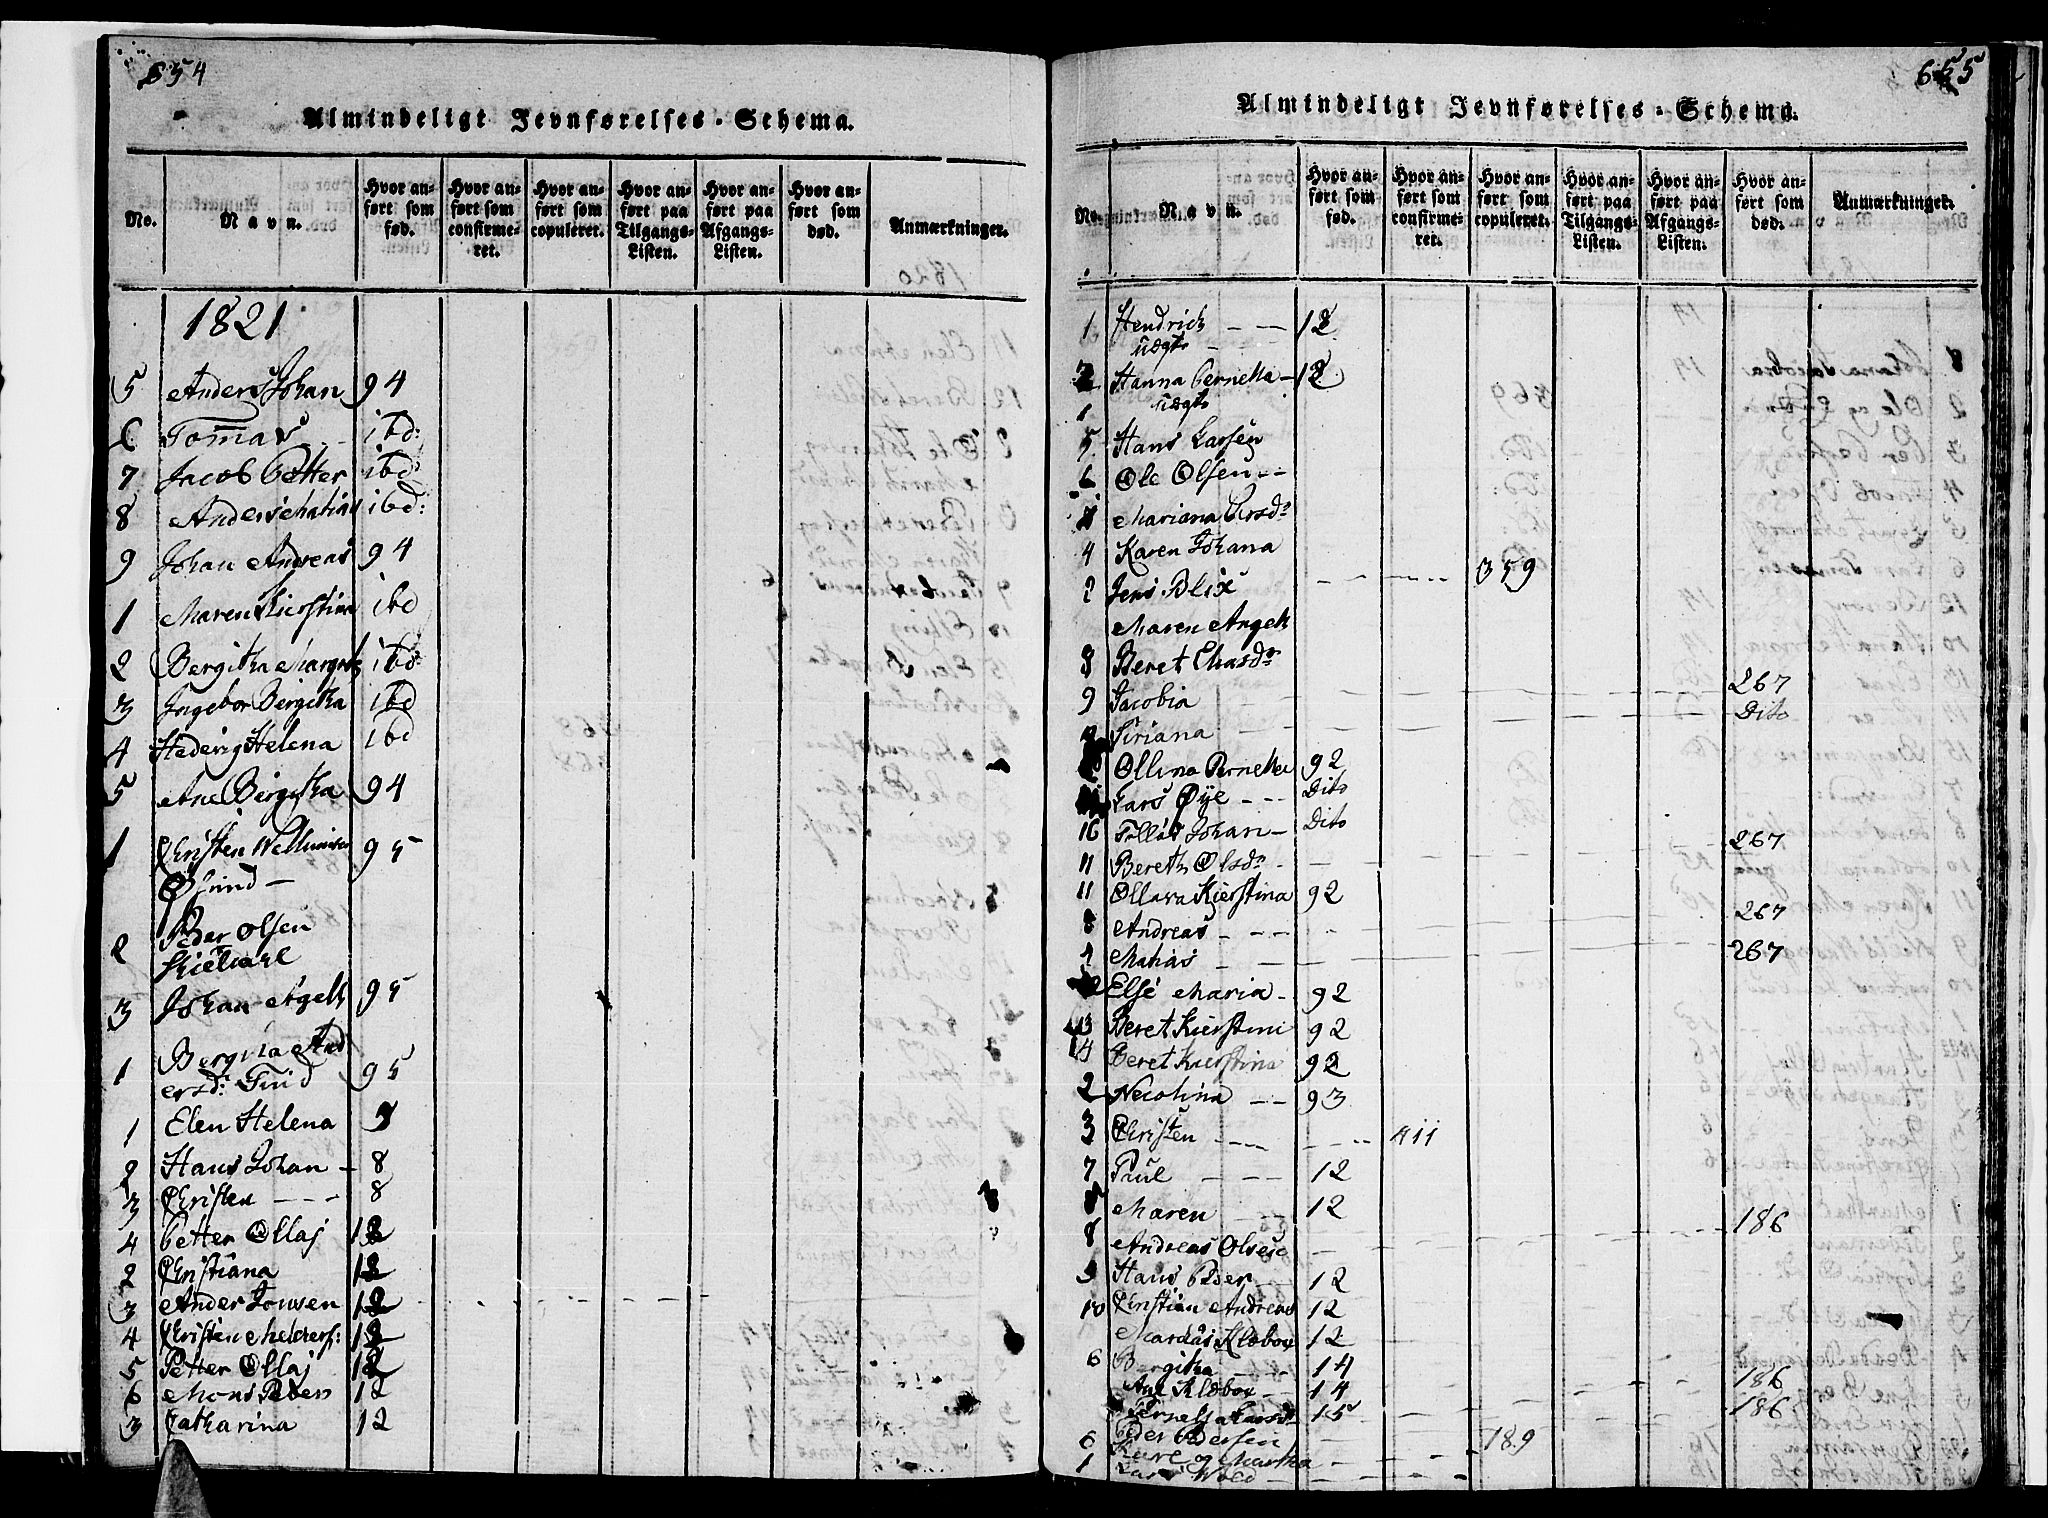 654
Almindeligt Jevnførelses-Schema.
No.
Navn.
Hvor anført som fød.
Hvor anført som confirmeret.
Hvor anført som copuleret.
Hvor anført paa Tilgangs-Listen.
Hvor anført paa Afgangs-Listen.
Hvor anført som død.
Anmærkninger.
1821
5 Anders Johan 94
6 Tomas ibd:
7 Jacob Petter ibd
8 Anders Mathias ibd:
9 Johan Andreas 94
1 Maren Kierstina ibd
2 Bergitha Margreta ibd:
3 Ingebor Bergitha ibd
4 Hedevig Helena ibd
5 Ane Bergitha 94
1 Christen 95
2 Peder Olsen
3 Johan Agell 95
1 And
ersd: 95
1 Elen Helena
2 Hans Johan - 8
3 Christen - - - 8
4 Petter Ollaj 12
2 Christiana 12
3 Ander Jonsen 12
4 Christen 12
5 Petter Ollaj 12
6 Mons Peder 12
3 Catharina 12
655
Almindeligt Jevnførelses-Schema.
No.
Navn.
Hvor anført som fød.
Hvor anført som confirmeret.
Hvor anført som copuleret.
Hvor anført paa Tilgangs-Listen.
Hvor anført paa Afgangs-Listen.
Hvor anført som død.
Anmærkninger.
1 Hendrich - - - 12
uægte
2 Hanna Pernella - 12
1 uægte
5 Hans Larsen
6 Ole Olsen - -
Mariana
4 Karen Johana
2 Jens Blix 359
Maren Angell
8 Beret Eliasdr
9 Jacobia 267
Siriana Dito
Ollina Pernella 92
Lars Øÿe - - - Dito
10 Johan - Dito
11 Bereth Olsdr 267
11 Ollava Kierstina 92
8 Andreas 267
Mathias 267
Else Maria - 92
13 Beret Kierstine 92
14 Beret Kierstina 92
2 Necolina - - 93
3 Christen - - - 411
7 Paul - - - 12
Maren - - 12
8 Andreas Olsen 186
9 Hans Peder 12
10 Christian Andreas 12
Klæboe 12
6 Bergitha 14
Ane Klæboe 14 186
Larsd 15 186
6 Peder Pedersen 189
1 og Martha